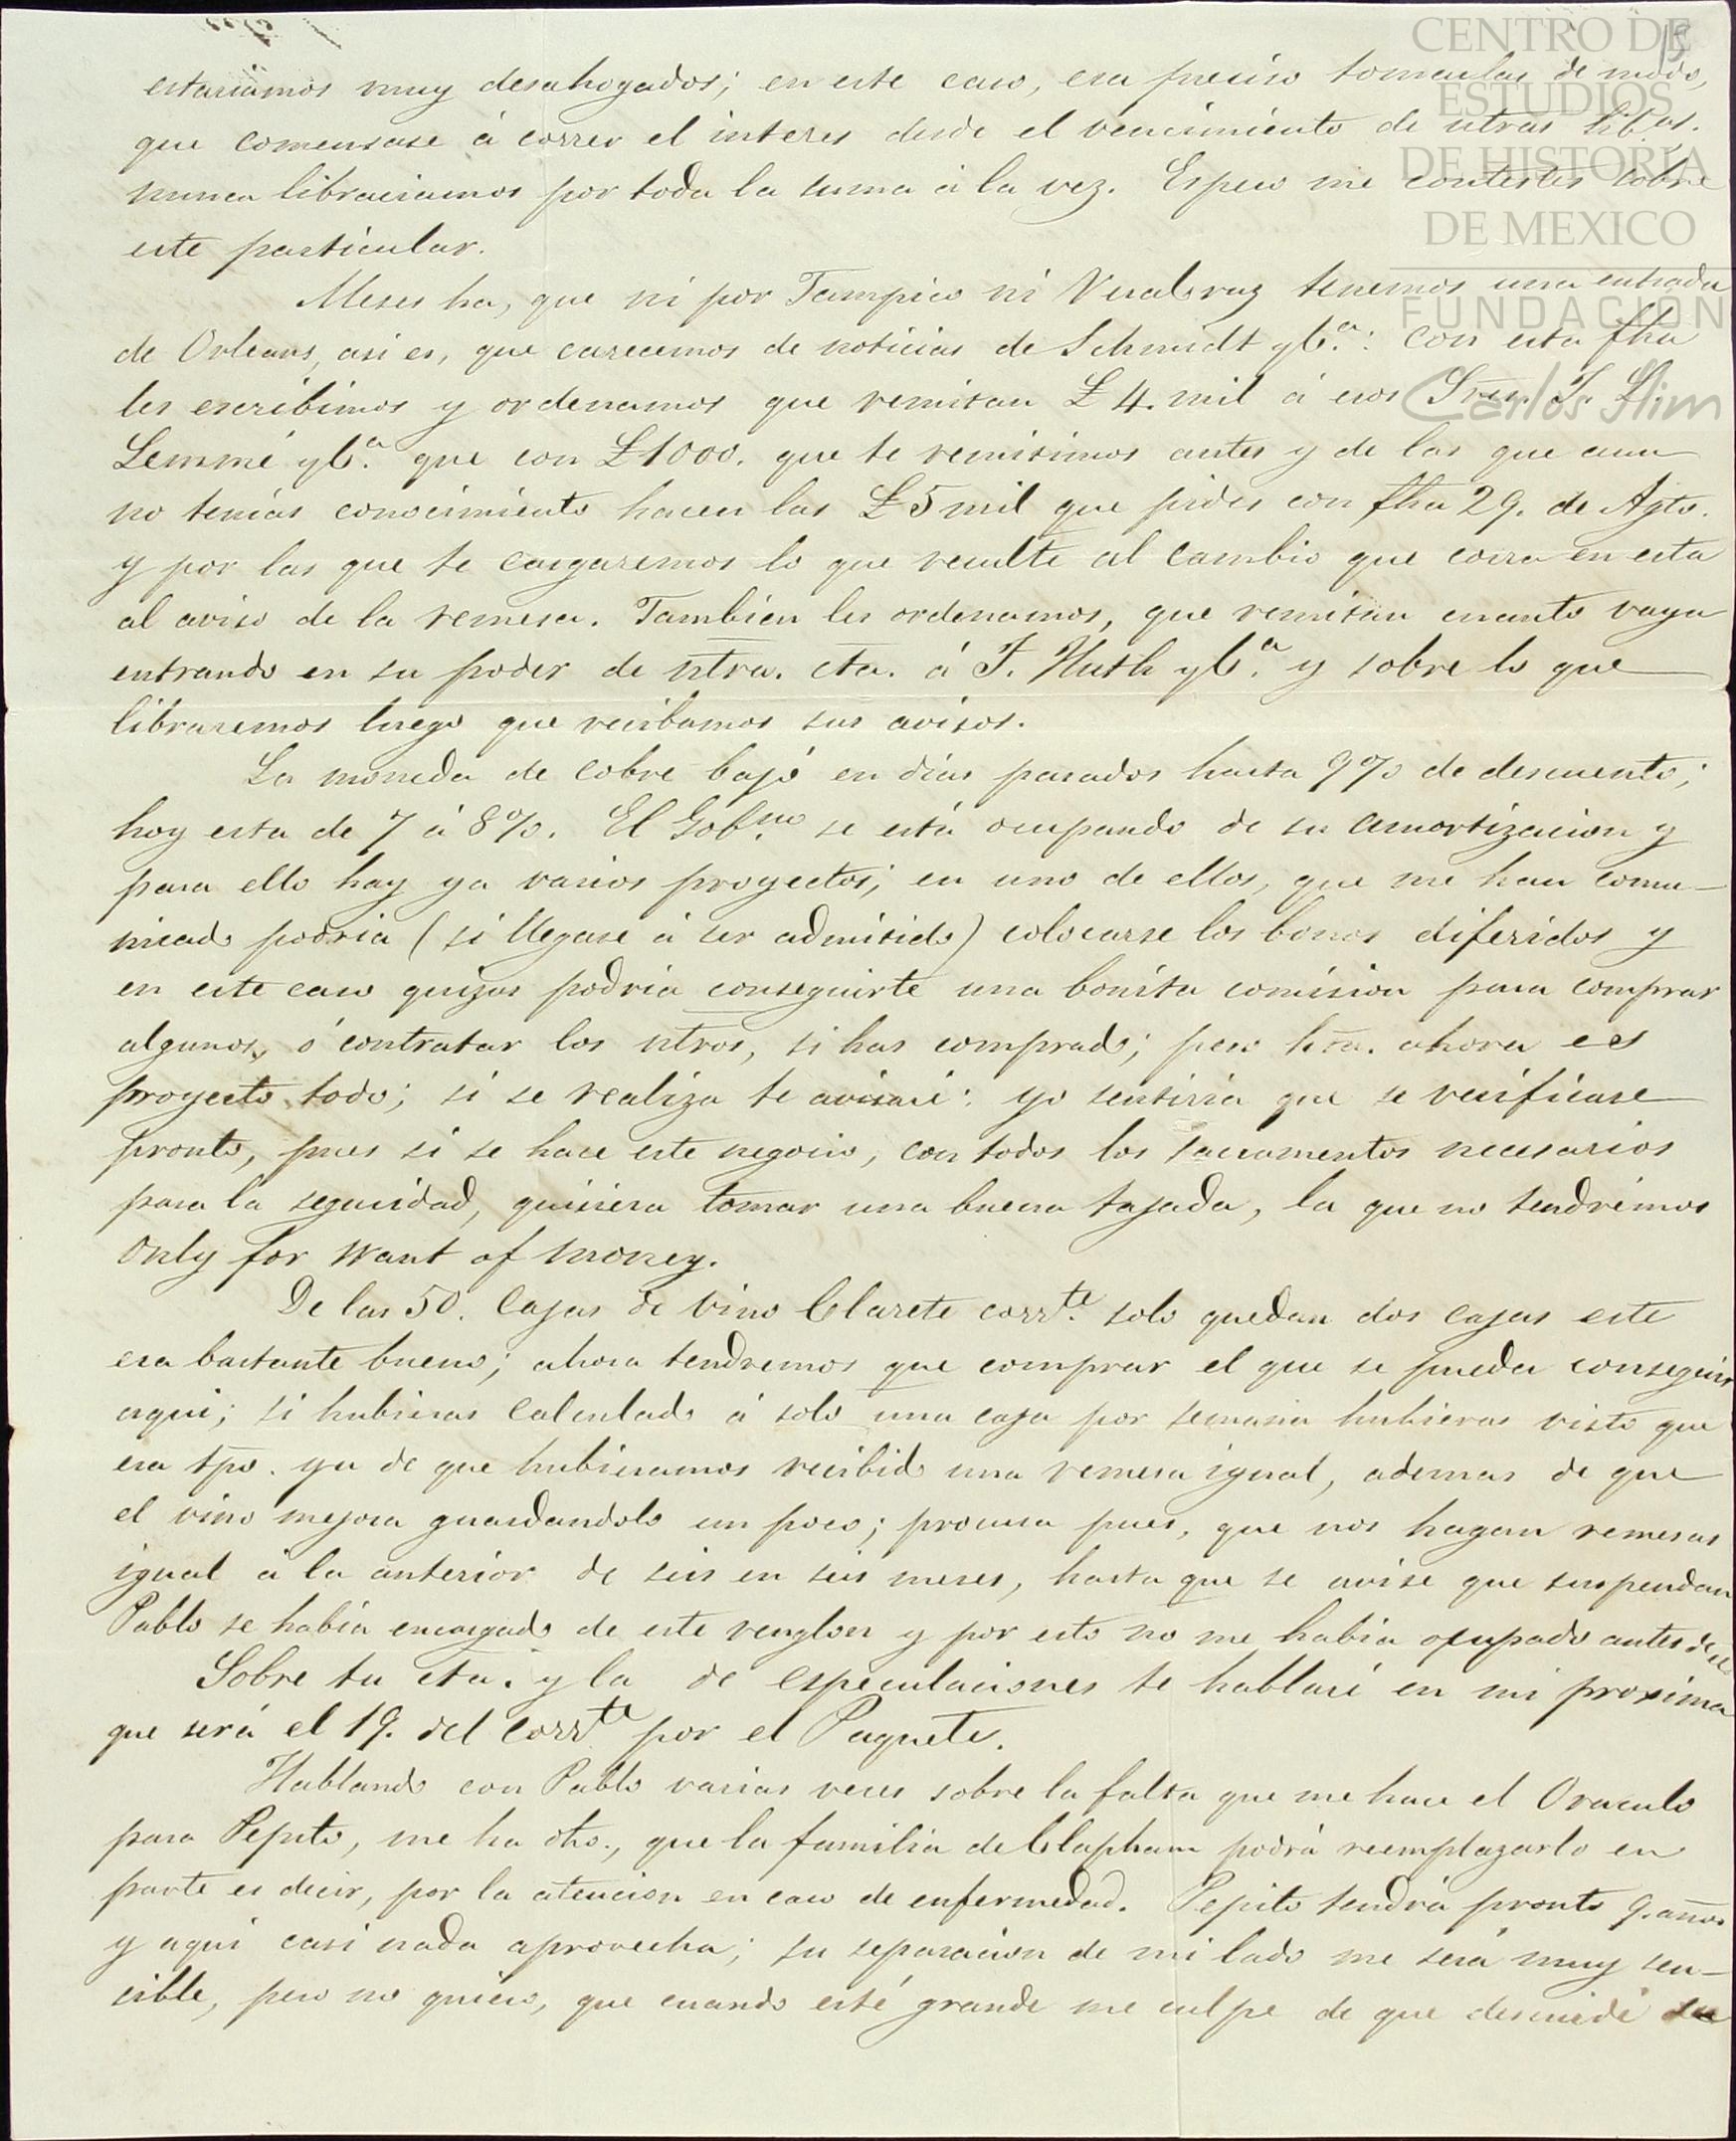 15
estariamos muy desahogados; en este caso, era preciso tomarlas de modo,
que comensase á correr el interes desde el vencimiento de ntras lib.as.
nunca librariamos por toda la suma á la vez. Espero me contestes sobre
este particular.
Meses ha, que ni por Tampico ni VeraCruz tenemos una entrada
de Orleans, asi es, que carecemos de noticias de Schmidt y C.a: con esta fha
les escribimos y ordenamos que remitan £ 4. mil á esos Sres.
Lemmé y C.a que con £1000. que te remitimos antes y de las que aun
no tenias conocimiento hacen las £5 mil que pides con fha 29. de Agto.
y por las que te cargaremos lo que resulte al cambio que corra en esta
al aviso de la remesa. Tambien les ordenamos, que remitan cuanto vaya
entrando en su poder de ntra. cta. á F. Huth y C.a y sobre lo que
libraremos luego que recibamos sus avisos.
La moneda de cobre bajó en dias pasados hasta 9% de descuento;
hoy esta de 7 á 8%. El Gob.no se está ocupando de su amortizacion y
para ello hay ya varios proyectos; en uno de ellos, que me han comu-
nicado podria (si llegase á ser admitido) colocarse los bonos diferidos y
en este caso quizas podria conseguirte una bonita comision para comprar
algunos, ó contratar los ntros, si has comprado; pero hta. ahora es
proyecto todo; si se realiza te avisaré: yo sentiria que se verificase
pronto, pues si se hace este negocio, con todos los sacramentos necesarios
para la seguridad, quisiera tomar una buena tajada, la que no tendrémos
only for want of money.
De las 50. Cajas de vino Clarete corr.te solo quedan dos cajas este
era bastante bueno; ahora tendremos que comprar el que se pueda conseguir
aqui; si hubieras calculado á solo una caja por semana hubieras visto que
era tpo. ya de que hubieramos recibido una remesa igual, ademas de que
el vino mejora guardandolo un poco; procura pues, que nos hagan remesas
igual á la anterior de seis en seis meses, hasta que se avise que suspendan
Pablo se habia encargado de este renglon y por esto no me habia ocupado antes de el
Sobre tu cta. y la de especulaciones te hablaré en mi proxima
que será el 19. del corr.te por el Paquete.
Hablando con Pablo varias veces sobre la falta que me hace el Oraculo
para Pepito, me ha dho., que la familia de Clapham podrá reemplazarlo en
parte es decir, por la atencion en caso de enfermedad. Pepito tendrá pronto 9. años
y aqui casi nada aprovecha; su separacion de mi lado me será muy sen-
cible, pero no quiero, que cuando esté grande me culpe de que descuidé su
CENTRO DE
ESTUDIOS
DE HISTORIA
DE MEXICO
FUNDACION
Carlos Slim